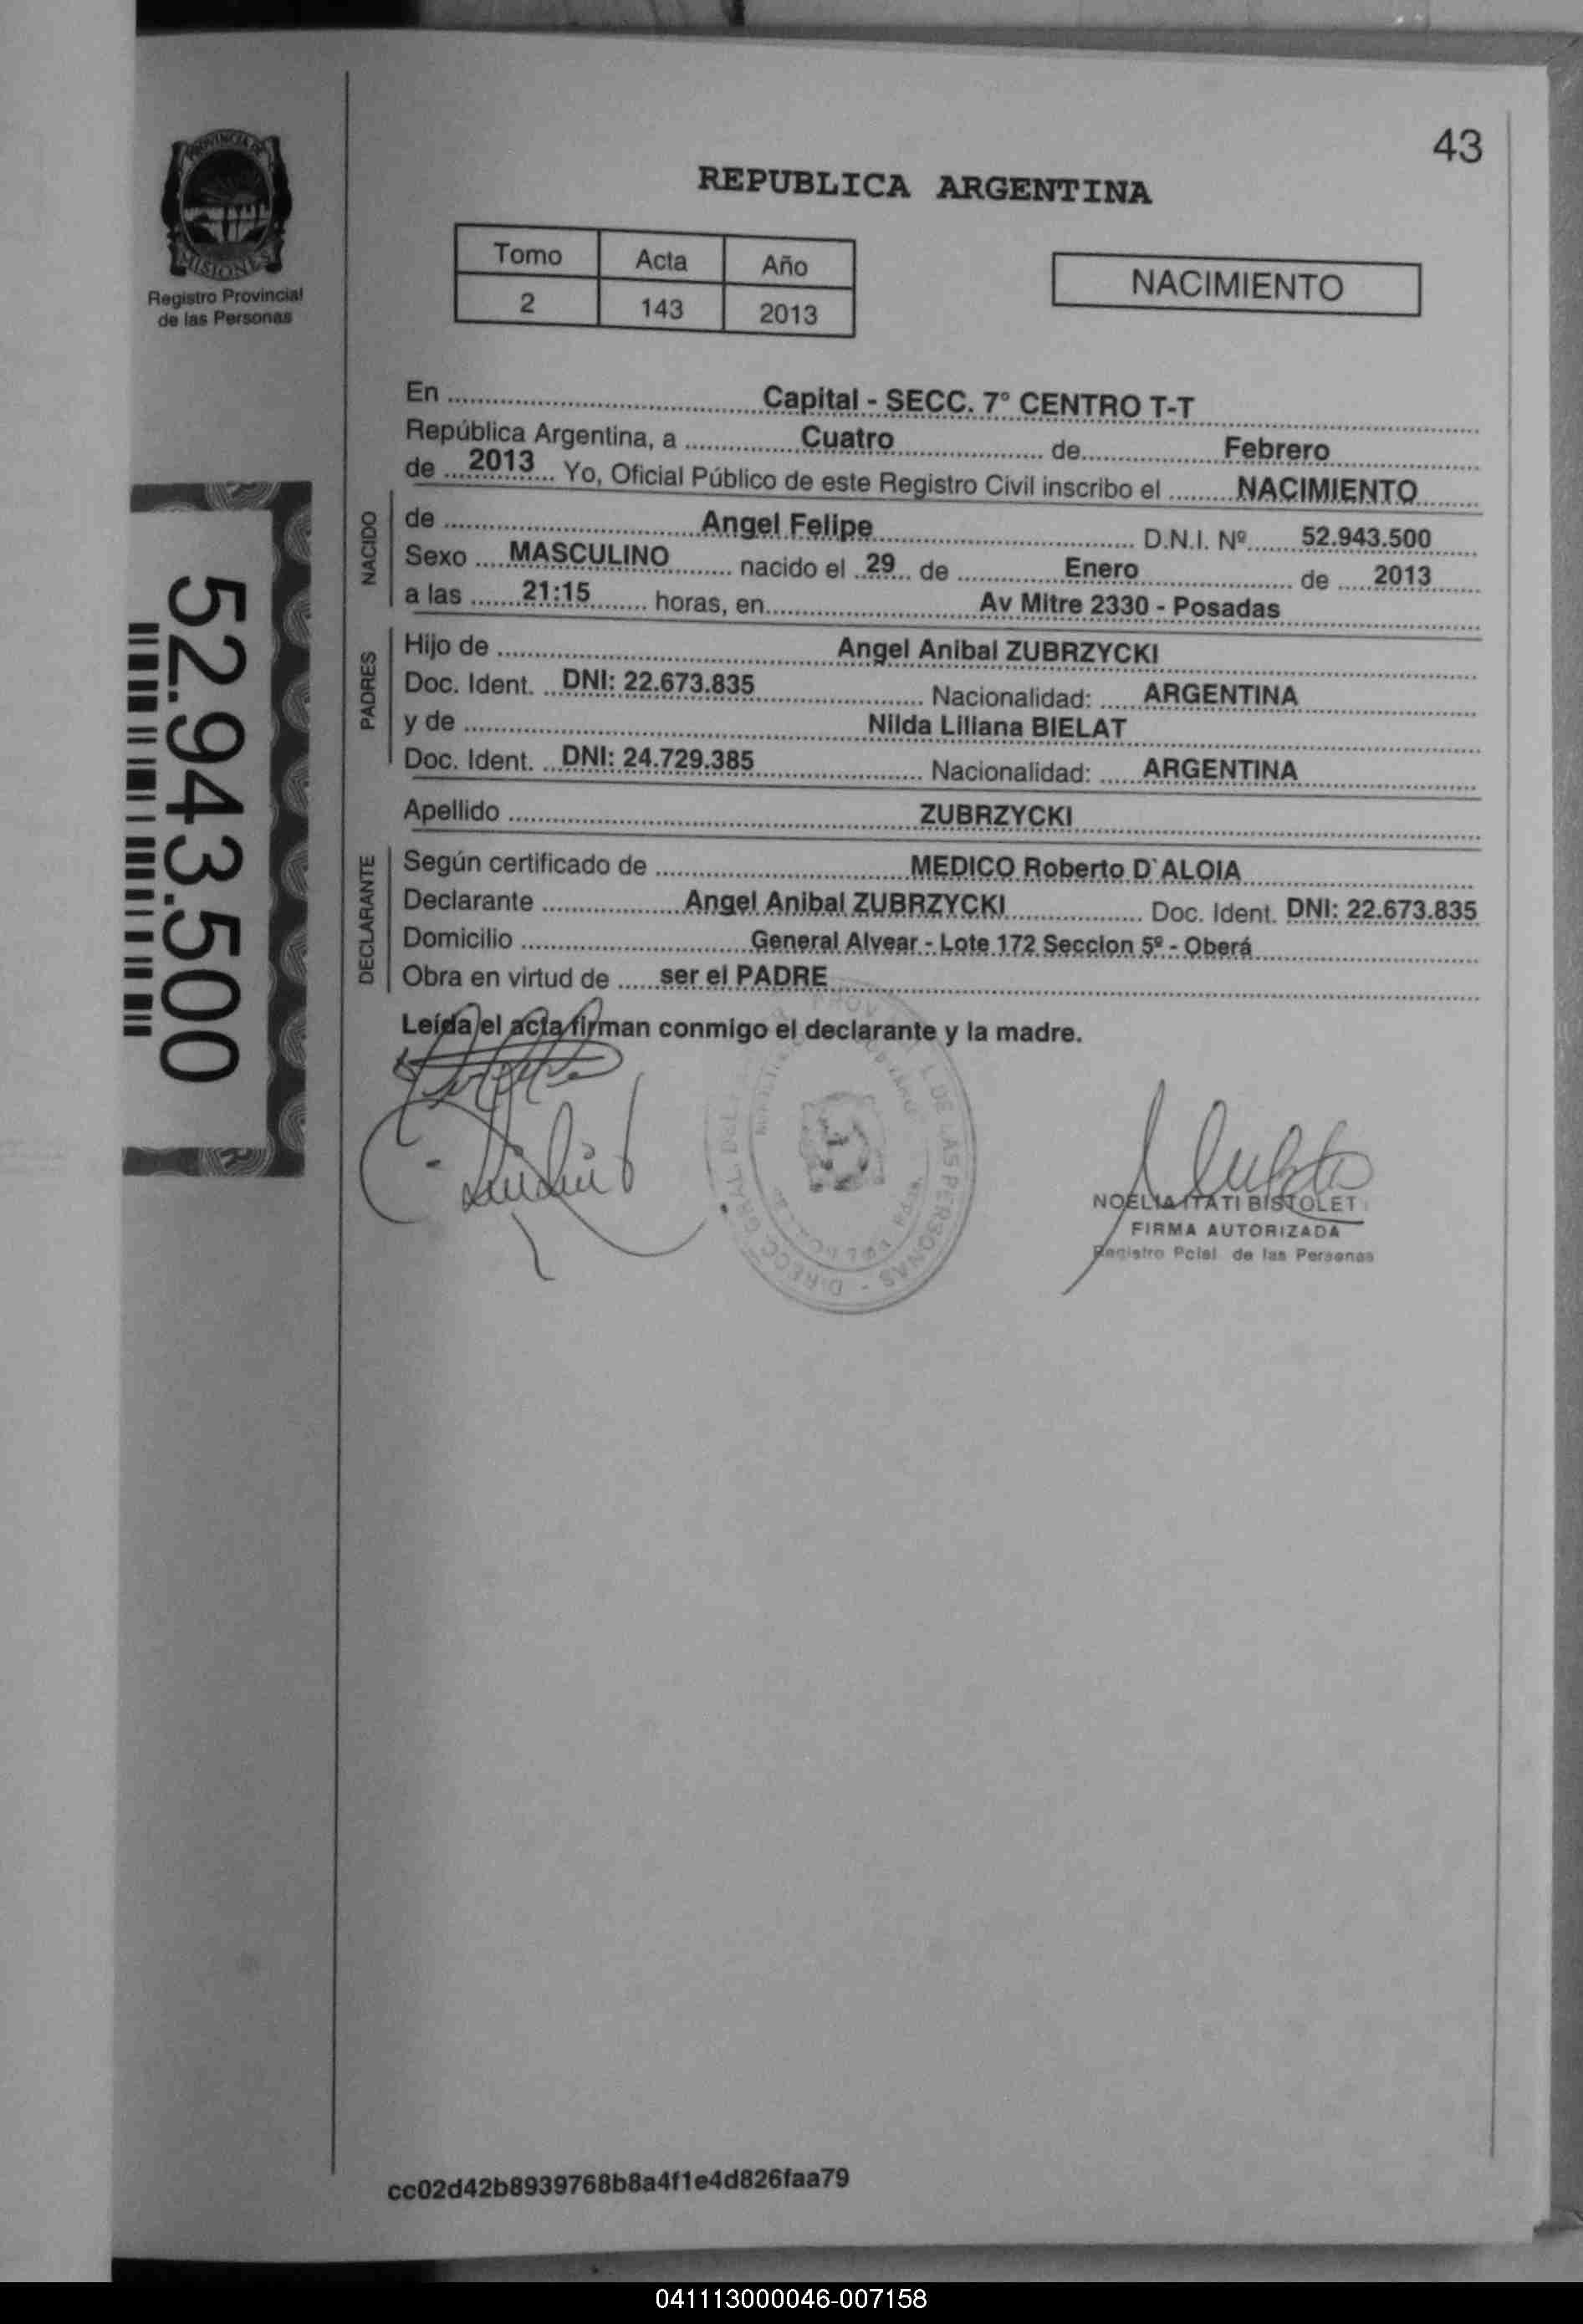 43
PROVINCIA DE
MISIONES
Registro Provincial
de las Personas
REPUBLICA ARGENTINA
Tomo Acta Año
2 143 2013
NACIMIENTO
En Capital - SECC. 7° CENTRO T-T
República Argentina, a Cuatro de Febrero
de 2013 Yo, Oficial Público de este Registro Civil inscribo el NACIMIENTO
NACIDO
de Angel Felipe D.N.I. Nº 52.943.500
Sexo MASCULINO nacido el 29 de Enero de 2013
a las 21:15 horas, en Av Mitre 2330 - Posadas
PADRES
Hijo de Angel Anibal ZUBRZYCKI
Doc. Ident. DNI: 22.673.835 Nacionalidad: ARGENTINA
y de Nilda Liliana BIELAT
Doc. Ident. DNI: 24.729.385 Nacionalidad: ARGENTINA
Apellido ZUBRZYCKI
DECLARANTE
Según certificado de MEDICO Roberto D`ALOIA
Declarante Angel Anibal ZUBRZYCKI Doc. Ident. DNI: 22.673.835
Domicilio General Alvear - Lote 172 Seccion 5º - Oberá
Obra en virtud de ser el PADRE
Leída el acta firman conmigo el declarante y la madre.
52.943.500
DE LAS PERSONAS - DIRECC. GRAL. DEL
NOELIA ITATI BISTOLET
FIRMA AUTORIZADA
Registro Pcial de las Personas
cc02d42b8939768b8a4f1e4d826faa79
041113000046-007158